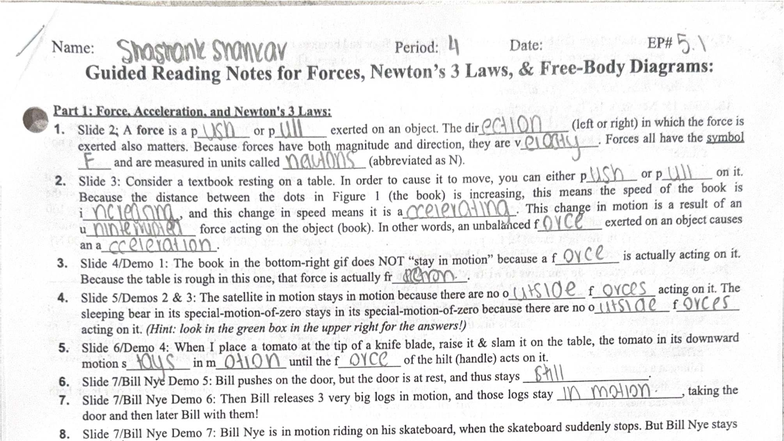 Name: Shashank Shankar Period: 4 Date: EP# 5.1
Guided Reading Notes for Forces, Newton's 3 Laws, & Free-Body Diagrams:
Part 1: Force, Acceleration, and Newton's 3 Laws:
1. Slide 2; A force is a push or pull exerted on an object. The direction (left or right) in which the force is
exerted also matters. Because forces have both magnitude and direction, they are velocity. Forces all have the symbol
F and are measured in units called newtons (abbreviated as N).
2. Slide 3: Consider a textbook resting on a table. In order to cause it to move, you can either push or pull on it.
Because the distance between the dots in Figure 1 (the book) is increasing, this means the speed of the book is
i, and this change in speed means it is accelerating. This change in motion is a result of an
u force acting on the object (book). In other words, an unbalanced force exerted on an object causes
an acceleration.
3. Slide 4/Demo 1: The book in the bottom-right gif does NOT "stay in motion" because a force is actually acting on it.
Because the table is rough in this one, that force is actually fr
4. Slide 5/Demos 2 & 3: The satellite in motion stays in motion because there are no outside forces acting on it. The
sleeping bear in its special-motion-of-zero stays in its special-motion-of-zero because there are no outside forces
acting on it. (Hint: look in the green box in the upper right for the answers!)
5. Slide 6/Demo 4: When I place a tomato at the tip of a knife blade, raise it & slam it on the table, the tomato in its downward
motion stays in motion until the force of the hilt (handle) acts on it.
6. Slide 7/Bill Nye Demo 5: Bill pushes on the door, but the door is at rest, and thus stays still.
7. Slide 7/Bill Nye Demo 6: Then Bill releases 3 very big logs in motion, and those logs stay in motion., taking the
door and then later Bill with them!
8. Slide 7/Bill Nye Demo 7: Bill Nye is in motion riding on his skateboard, when the skateboard suddenly stops. But Bill Nye stays